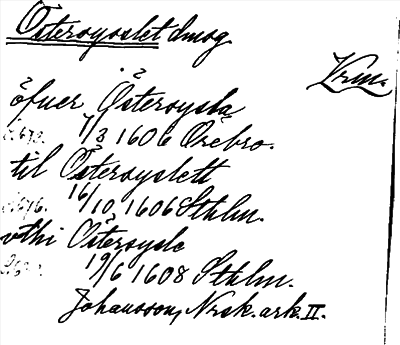 Östersysslet dmog
Vrm.
öfuer Östersysla
7/3 1606 Örebro.
til Östersyslett
16/10 1606 Sthlm.
vthi Östersysle
19/6 1608 Sthlm.
Johansson, Nrsk. ark. II.